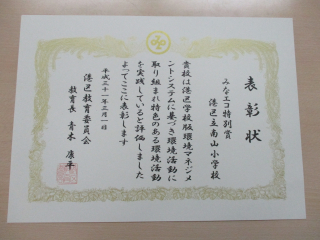 表彰状
みなエコ特別賞
港区立南山小学校
貴校は港区学校版環境マネジメ
ントシステムに基づき環境活動に
取り組まれ特色のある環境活動
を実践していると評価しました
よってここに表彰します
平成三十一年三月一日
港区教育委員会
教育長 青木 康平